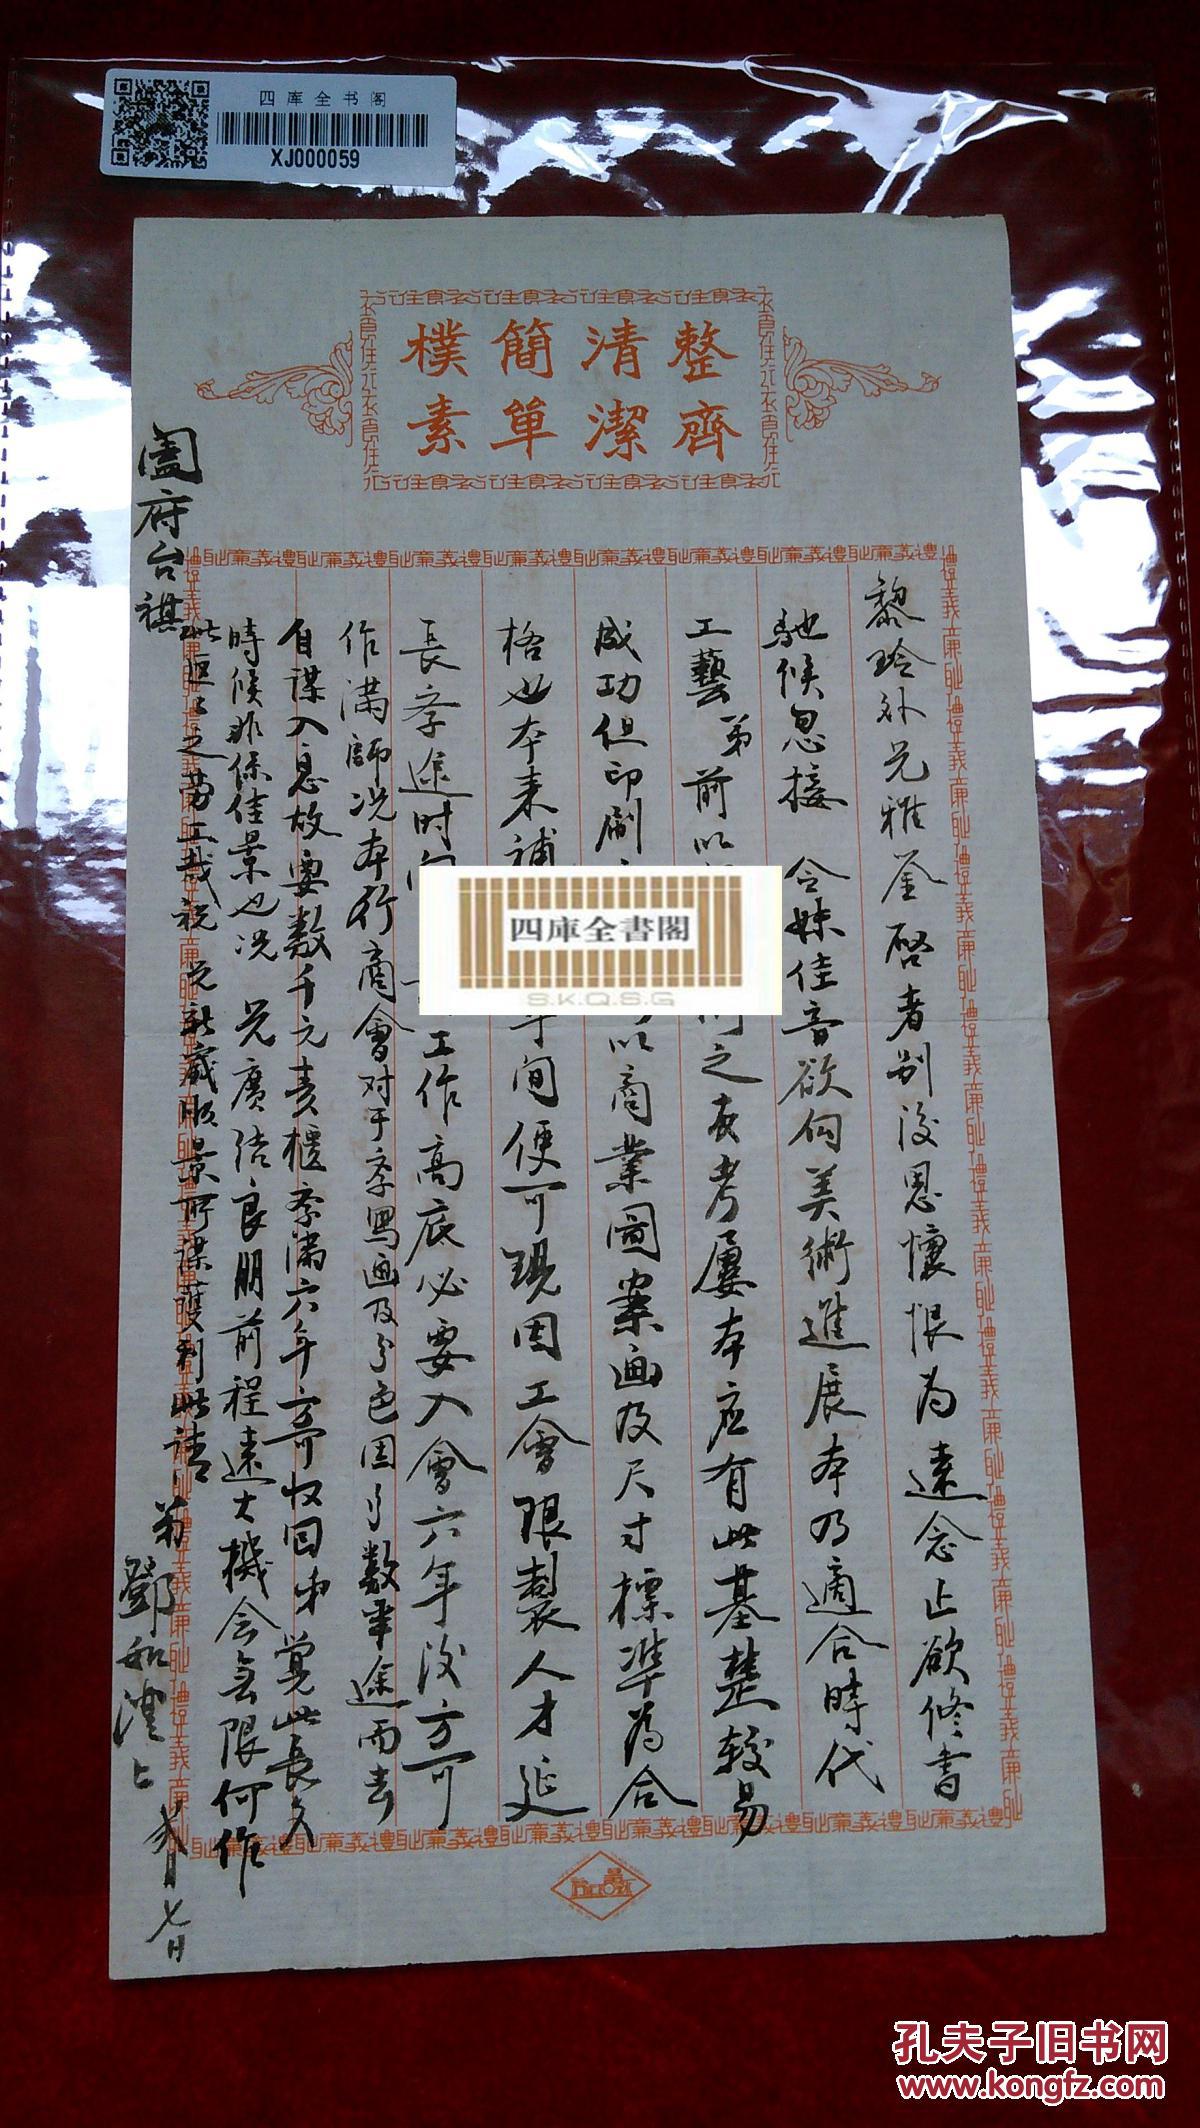 四库全书阁
XJ000059
整齊
清潔
簡單
樸素
黎玲外兄雅鉴啓者别後思懷恨为遠念止欲修書
馳候忽接 令妹佳音欲向美術進展本乃適合時代
工藝弟前以之衣考屢本应有此基楚较易
成功但印刷以商業圖案画及尺寸標準為合
格也本来補年间便可現因工會限製人才延
長孛途时向工作高底必要入會六年後方可
作满師况本行商會对于孛寫画及了色因了數率途而去
自谋入息故要數千元责櫃孛满六年方可收回弟覚此長久
時候非係佳景也况 兄廣结良朋前程遠大機会無限何作
此之劳工哉祝兄新歲勝景所謀獲利此請
阖府台祺
弟鄧和灃上 贰月七日
四庫全書閣
S.K.Q.S.G
孔夫子旧书网
www.kongfz.com